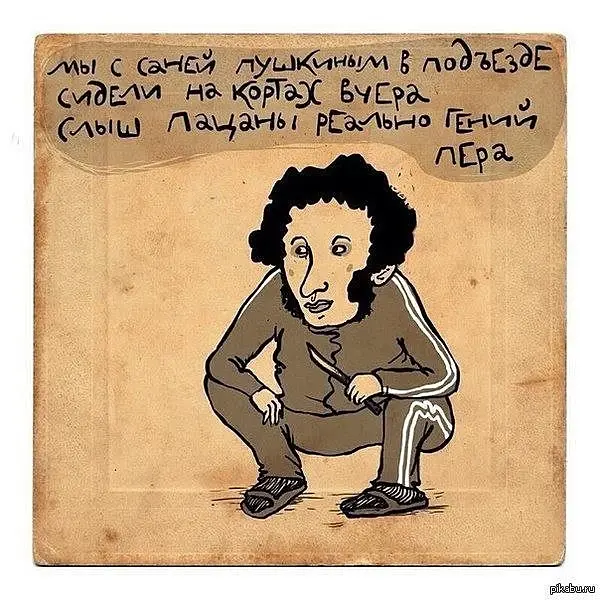 мы с саней пушкиным в подъезде
сидели на кортах вчера
слыш пацаны реально гений
пера
pikabu.ru